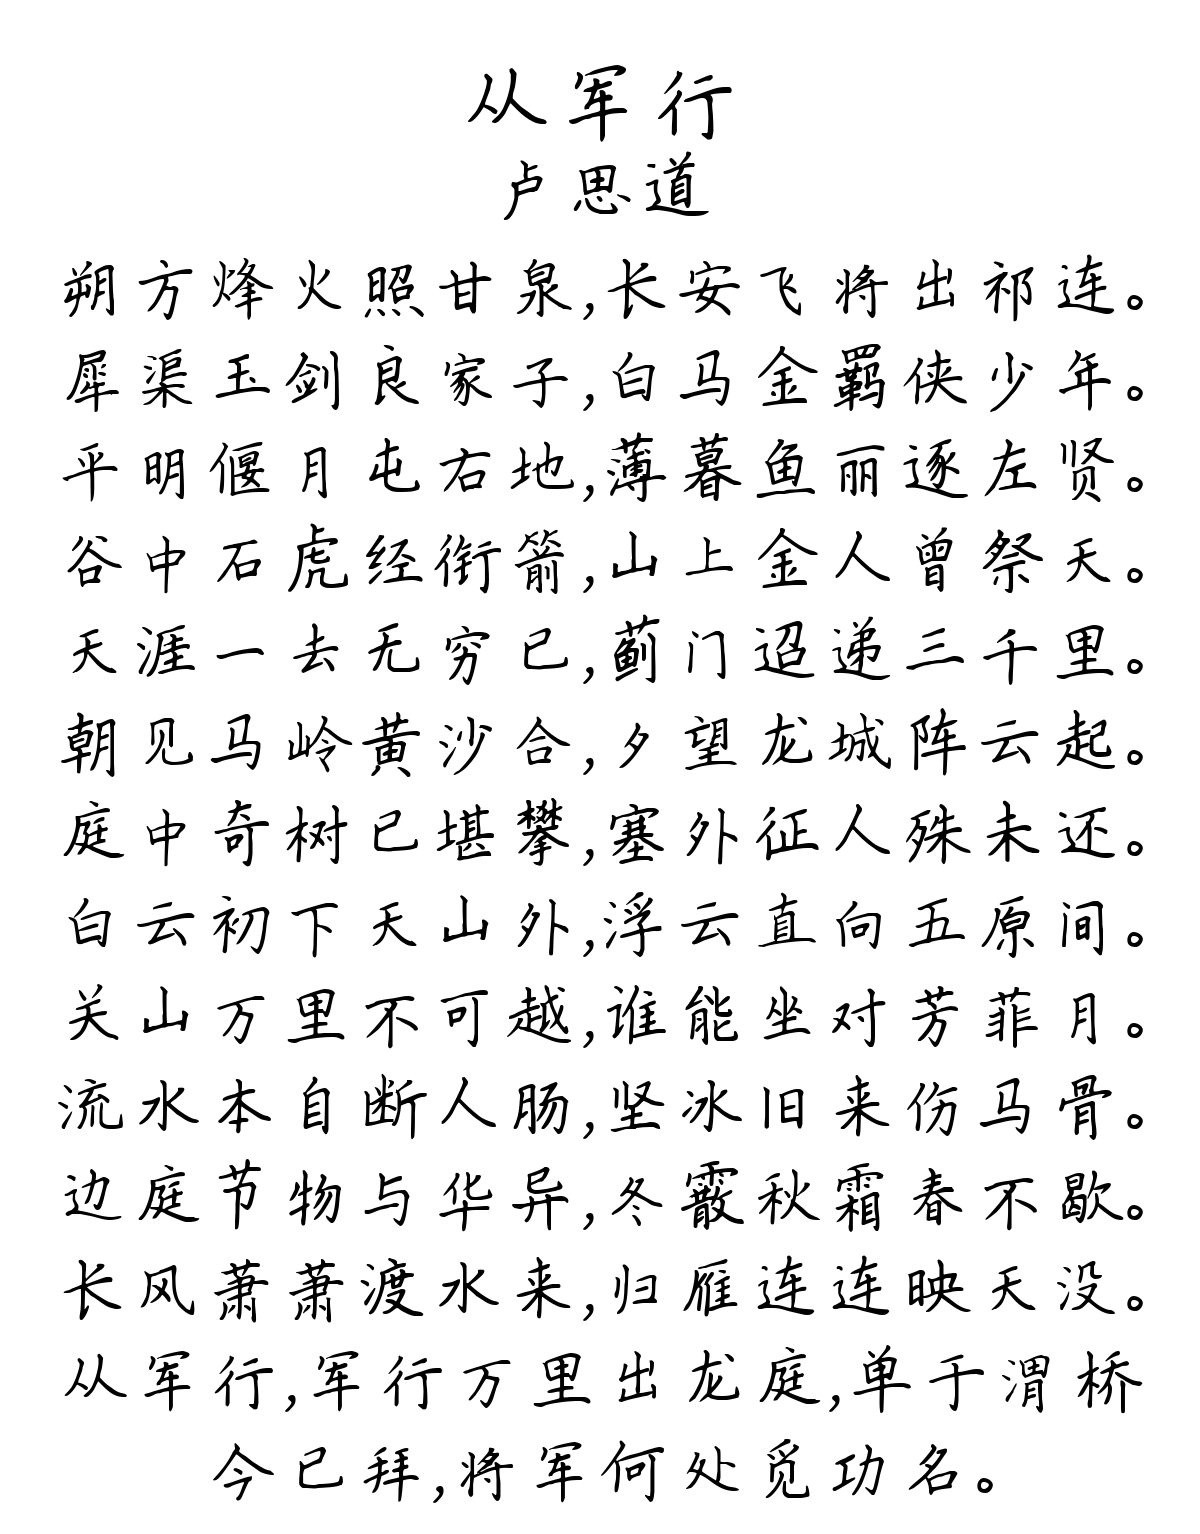 从军行
卢思道
朔方烽火照甘泉,长安飞将出祁连。
犀渠玉剑良家子,白马金羁侠少年。
平明偃月屯右地,薄暮鱼丽逐左贤。
谷中石虎经衔箭,山上金人曾祭天。
天涯一去无穷已,蓟门迢递三千里。
朝见马岭黄沙合,夕望龙城阵云起。
庭中奇树已堪攀,塞外征人殊未还。
白云初下天山外,浮云直向五原间。
关山万里不可越,谁能坐对芳菲月。
流水本自断人肠,坚冰旧来伤马骨。
边庭节物与华异,冬霰秋霜春不歇。
长风萧萧渡水来,归雁连连映天没。
从军行,军行万里出龙庭,单于渭桥
今已拜,将军何处觅功名。